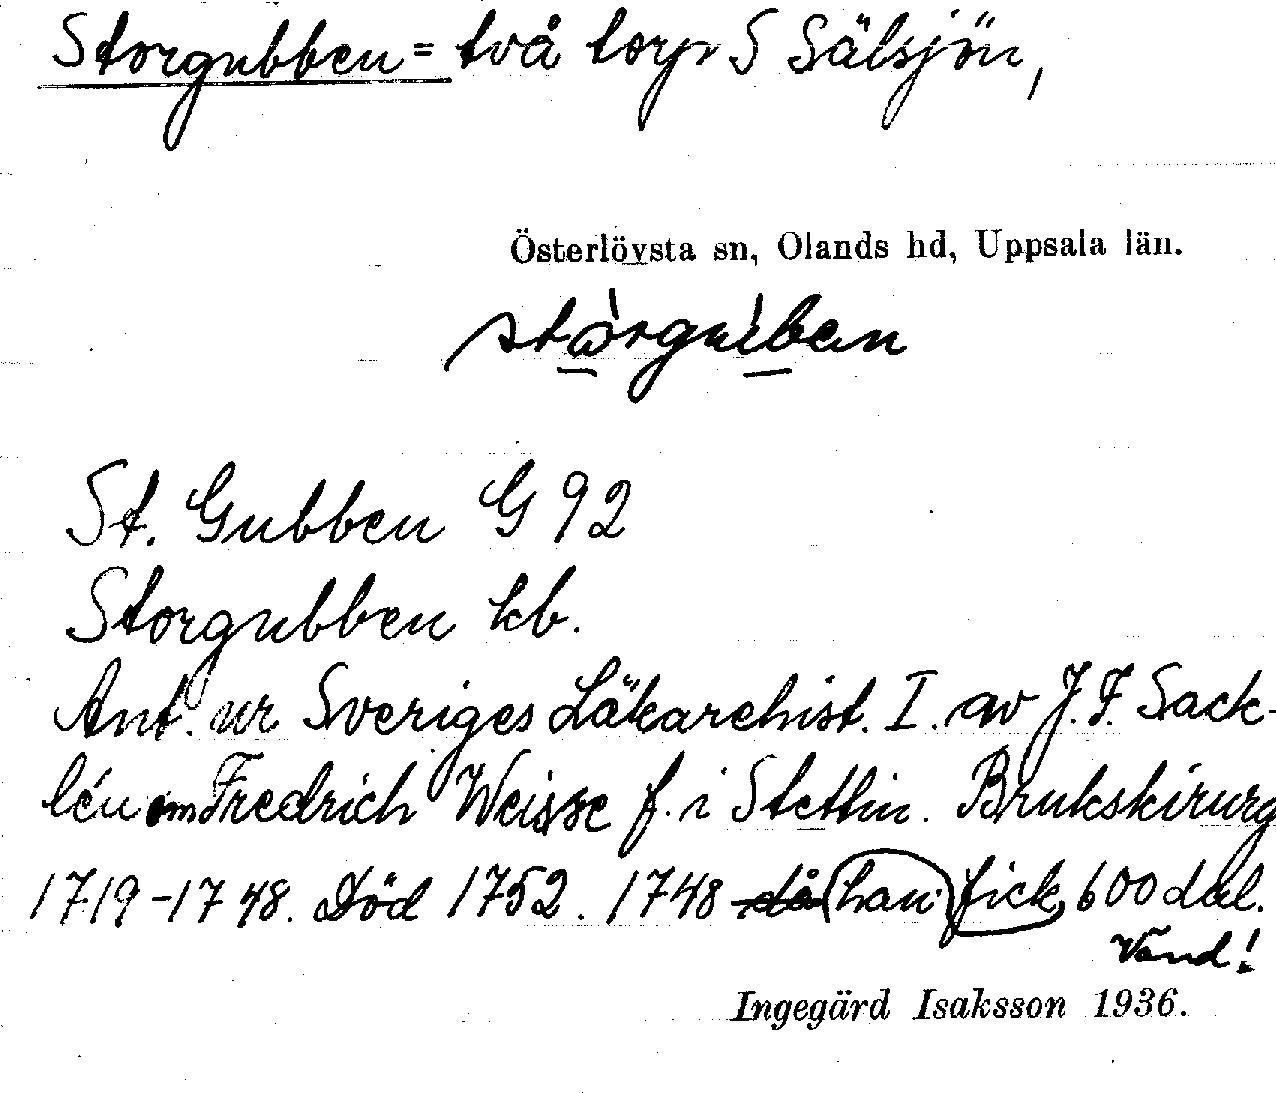 Storgubben = två torp S Sälsjön,
Österlövsta sn, Olands hd, Uppsala län.
stòrgúben
St. Gubben G 92
Storgubben kb.
Ant. ur Sveriges Läkarehist. I. av J. F. Sack-
lén om Fredrich Weisse f. i Stettin. Brukskirurg
1719-1748. Död 1752. 1748 då han fick 600 dal.
Vänd!
Ingegärd Isaksson 1936.